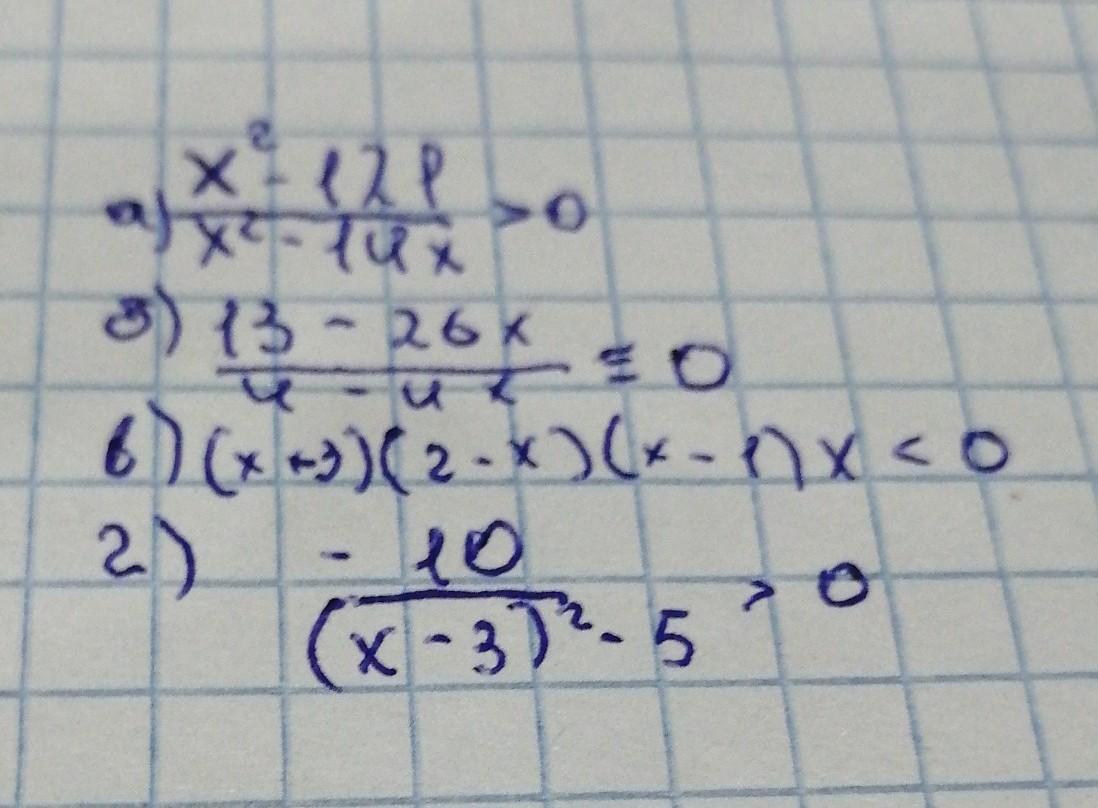 а) x² - 121 / x² - 14x > 0
б) 13 - 26x / 4 - 4x ≤ 0
в) (x+3)(2-x)(x-1)x < 0
г) -10 / (x-3)² - 5 > 0